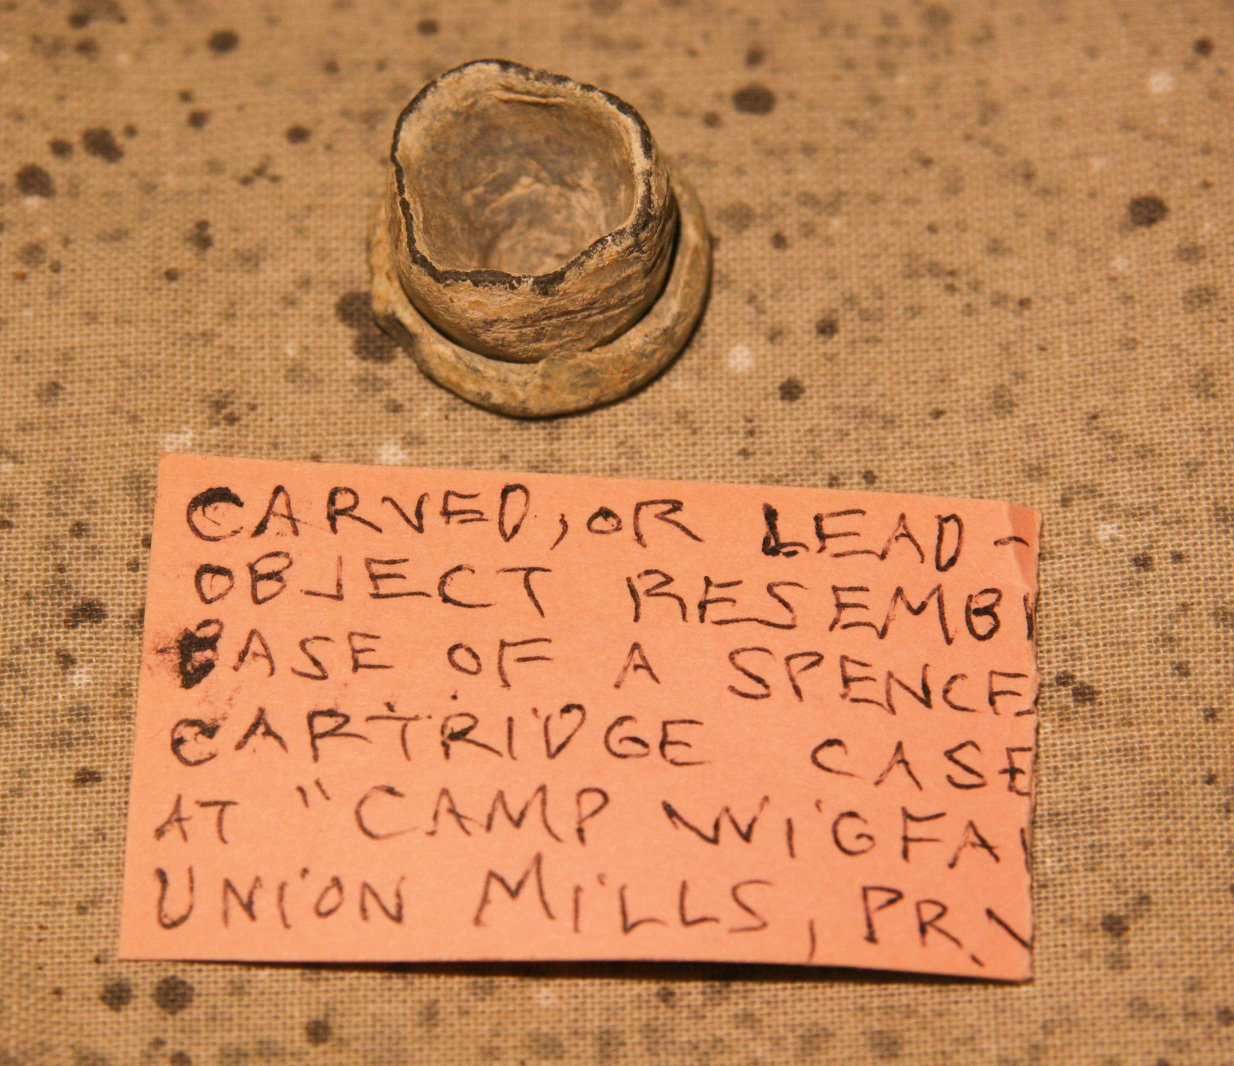 CARVED, OR LEAD -
OBJECT RESEMB
BASE OF A SPENCE
CARTRIDGE CASE
AT "CAMP WIGFA
UNION MILLS, PR.